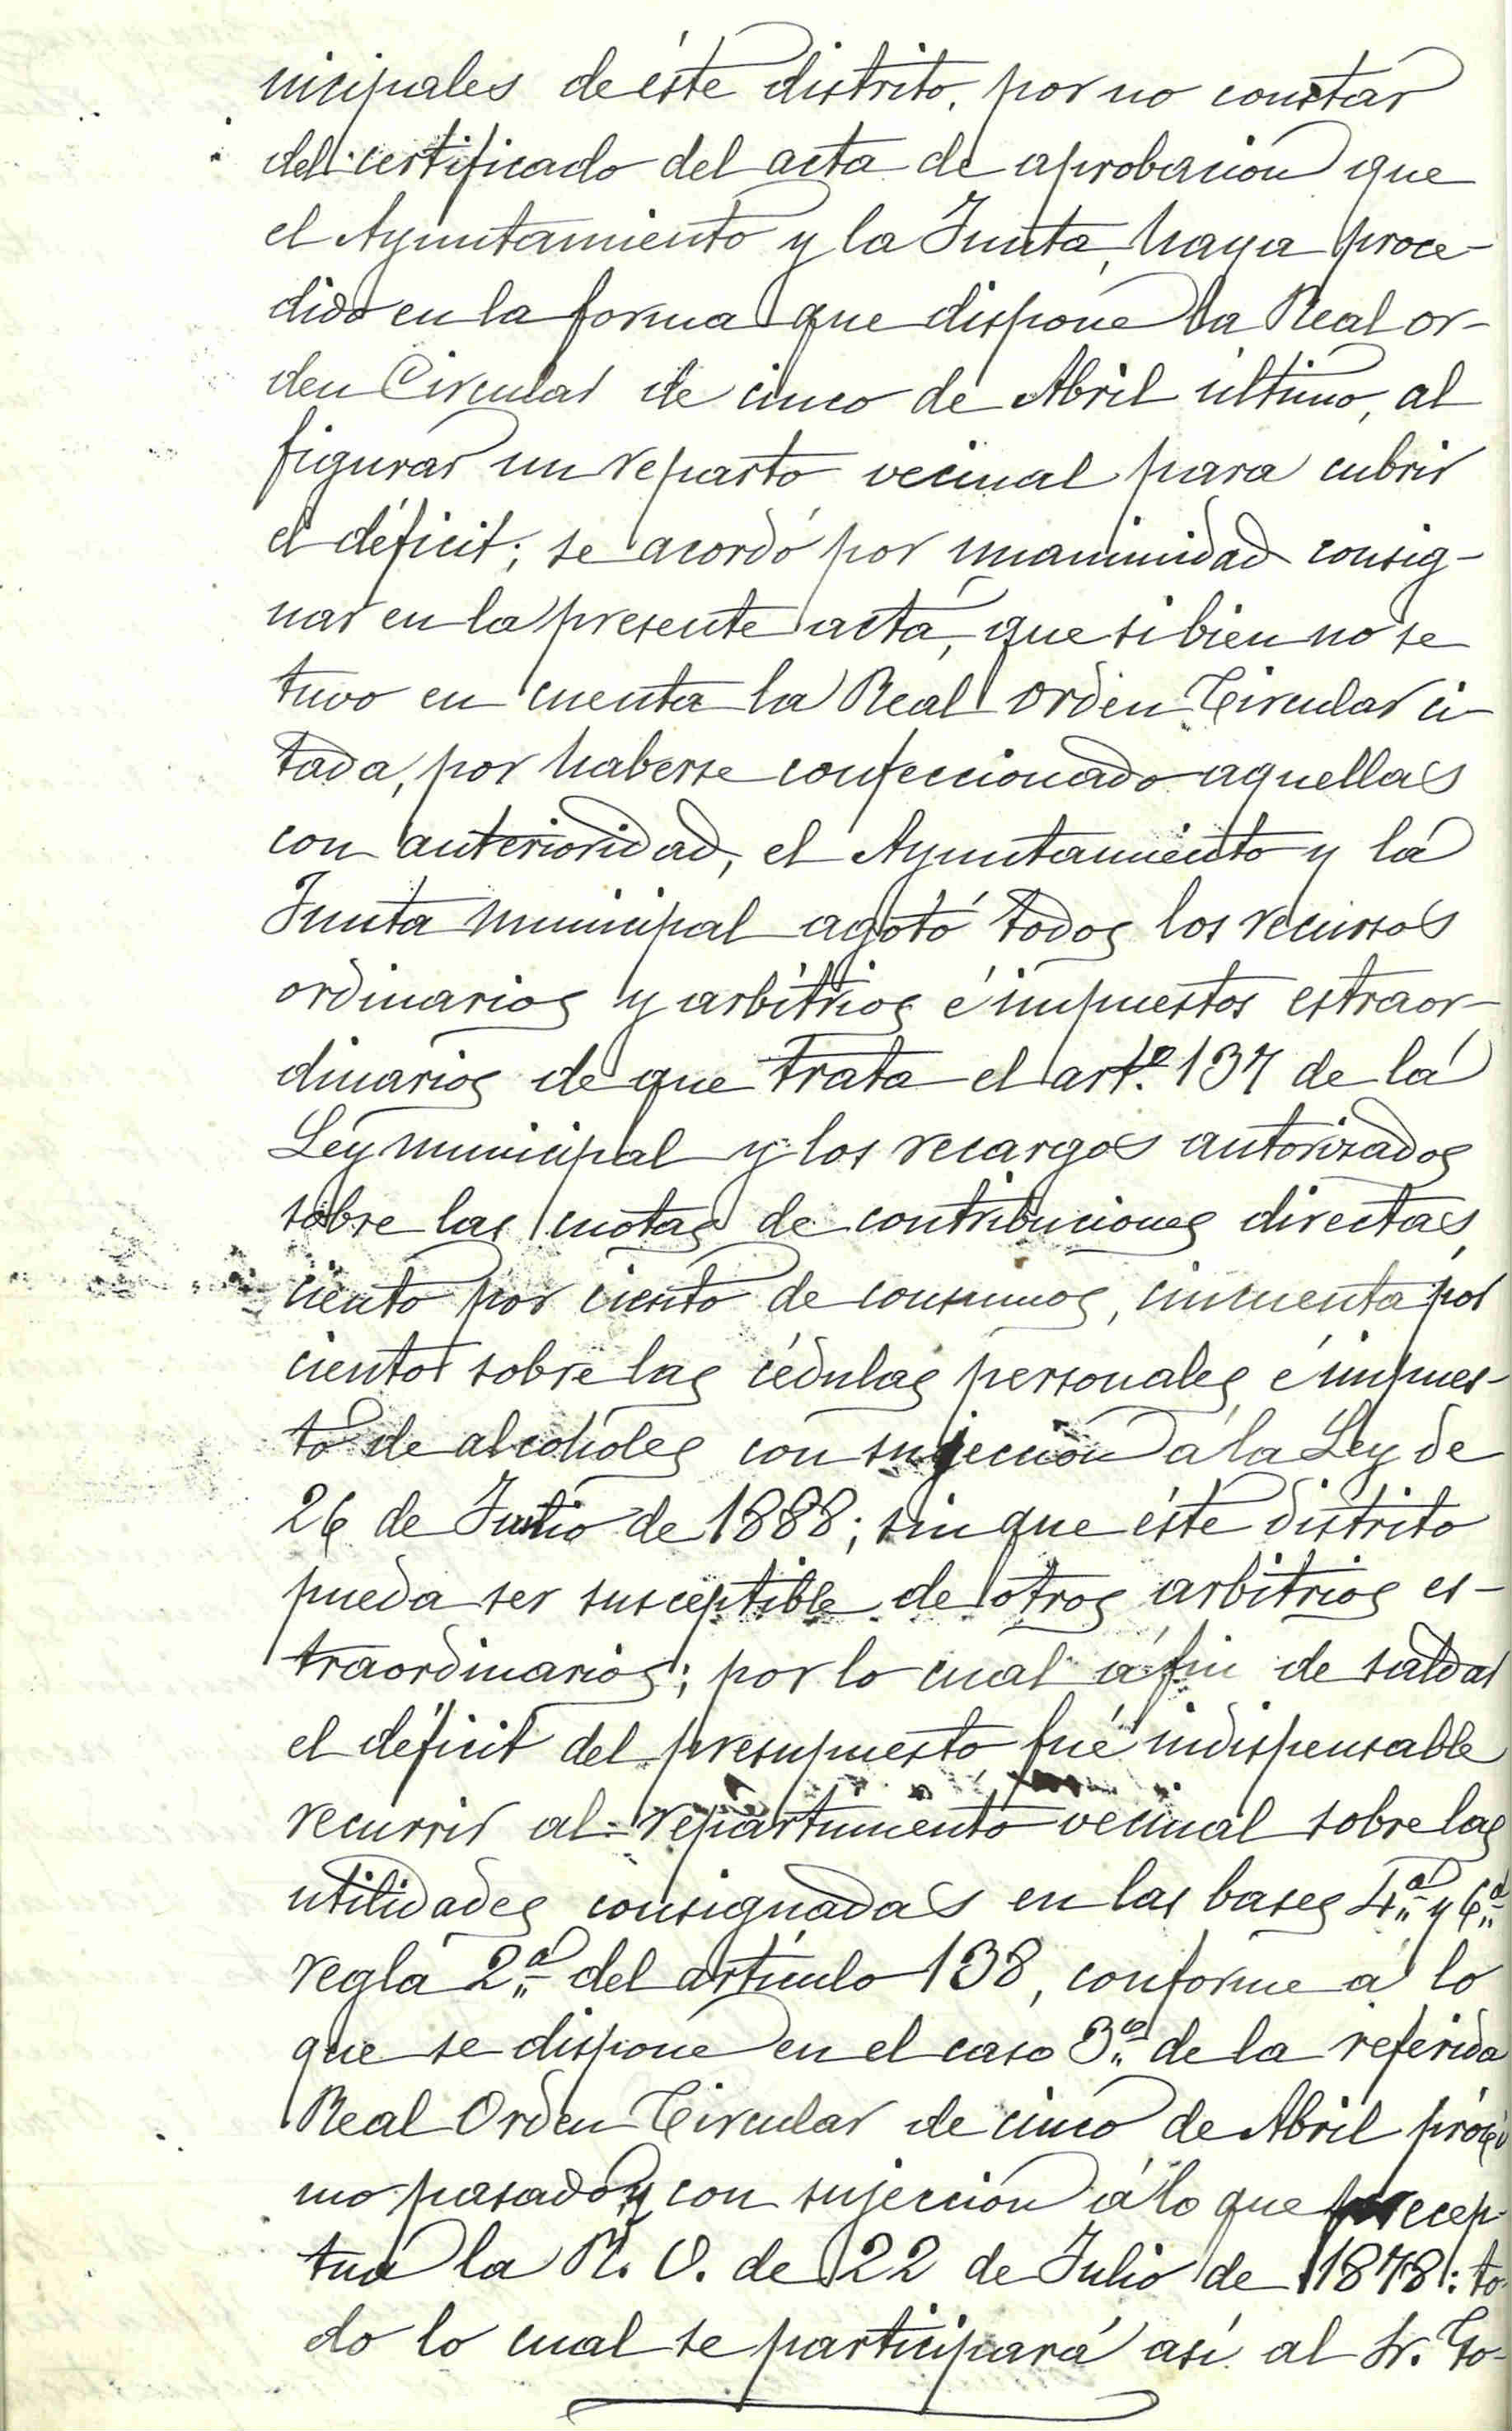 nicipales de éste distrito, por no constar
del certificado del acta de aprobacion que
el Ayuntamiento y la Junta, haya proce-
dido en la forma que dispone la Real or-
den Circular de cinco de Abril último, al
figurar un reparto vecinal para cubrir
el déficit; se acordó por unanimidad consig-
nar en la presente acta, que si bien no se
tuvo en cuenta la Real orden Circular ci-
tada, por haberse confeccionado aquellas
con anterioridad, el Ayuntamiento y la
Junta municipal agotó todos los recursos
ordinarios y arbitrios é impuestos estraor-
dinarios de que trata el artº 137 de la
Ley municipal y los recargos autorizados
sobre las cuotas de contribuciones directas,
ciento por ciento de consumos, cincuenta por
ciento sobre las cédulas personales é impues-
to de alcoholes con sujeccion á la Ley de
26 de Junio de 1888; sin que éste distrito
pueda ser susceptible de otros arbitrios es-
traordinarios; por lo cual á fin de saldar
el déficit del presupuesto fué indispensable
recurrir al repartimiento vecinal sobre las
utilidades consignadas en las bases 4ª y 6ª
regla 2ª del artículo 138, conforme a lo
que se dispone en el caso 3º de la referida
Real Orden Circular de cinco de Abril próxi
mo pasado y con sujeccion á lo que precep-
tua la R. O. de 22 de Julio de 1878: to-
do lo cual se participará asi al Sr. Go-